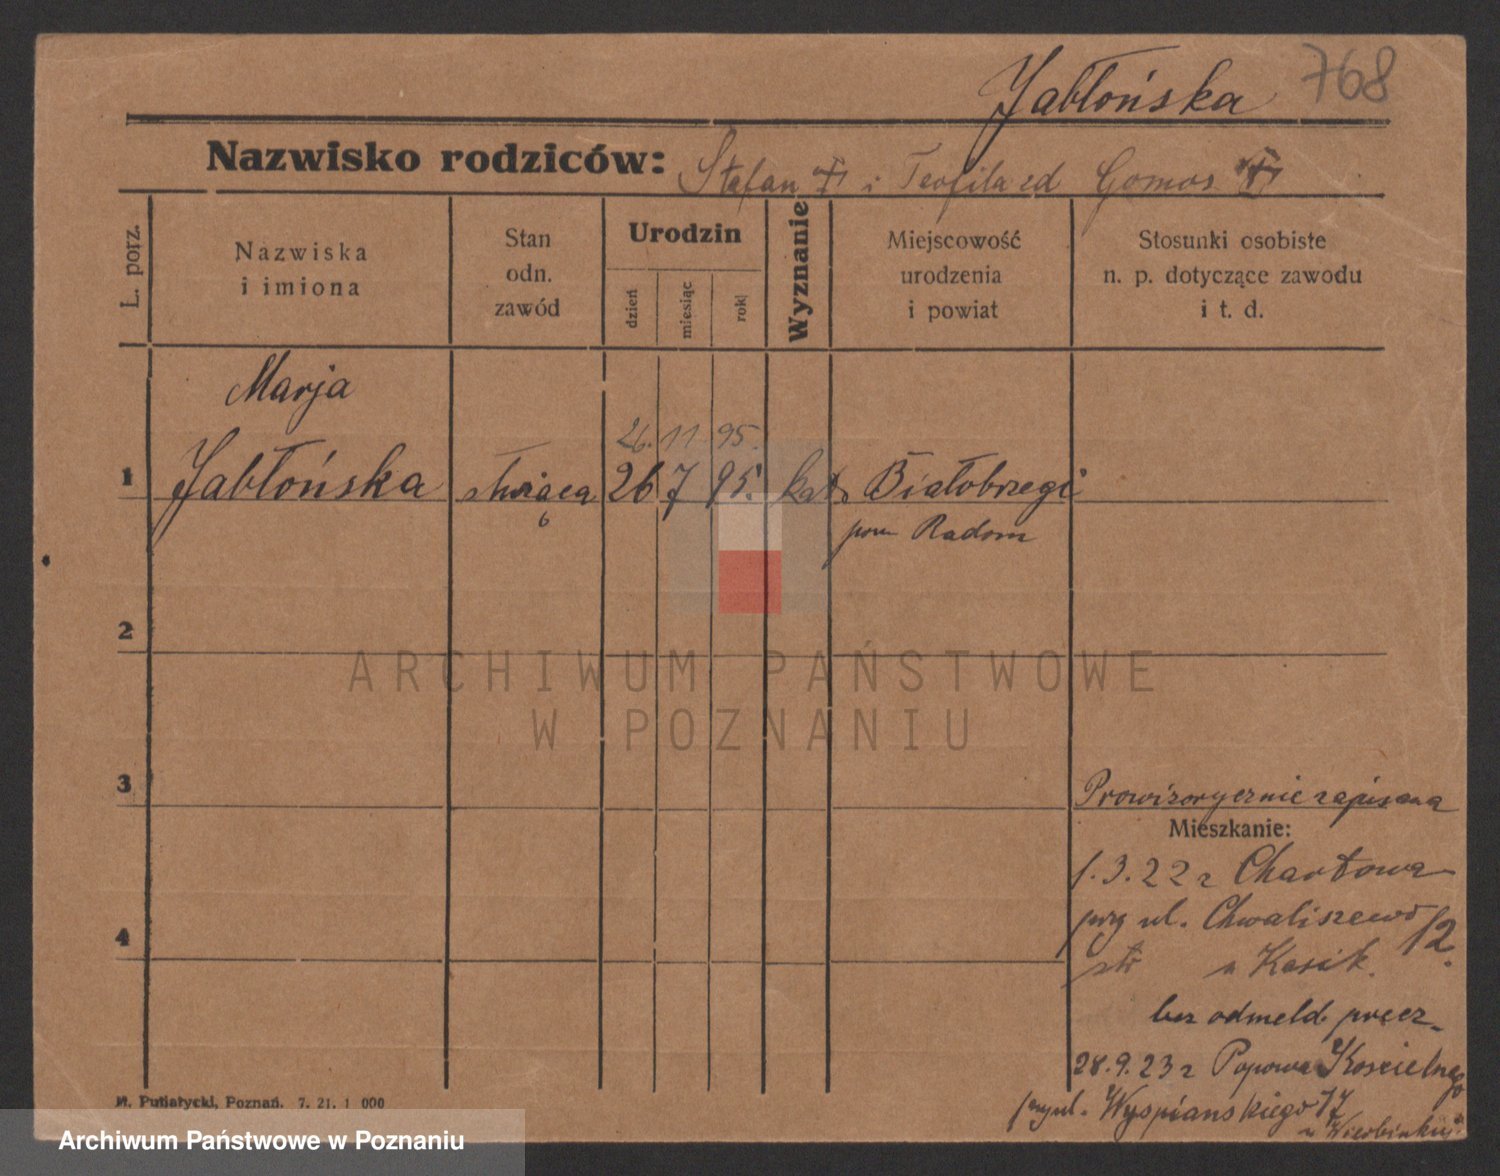 Jabłońska 768
Nazwisko rodziców: Stefan i Teofila zd Gomos
L. porz.
Nazwiska
i imiona
Stan
odn.
zawód
Urodzin
dzień
miesiąc
rok
Wyznanie
Miejscowość
urodzenia
i powiat
Stosunki osobiste
n. p. dotyczące zawodu
i t. d.
Marja
26. 11 95.
1 Jabłońska służąca 26 7 95. kat. Białobrzegi
pow Radom
2
ARCHIWUM PAŃSTWOWE
W POZNANIU
3
Prowizorycznie zapisana
Mieszkanie:
1.3.22 z Chartowa
przy ul. Chwaliszewo 12.
str u Kasik.
4
bez odmeld. precz.
28.9.23 z Popowa Kościelnego
przy ul. Wyspiańskiego 17
M. Putiatycki, Poznań. 7. 21. 1 000
Archiwum Państwowe w Poznaniu